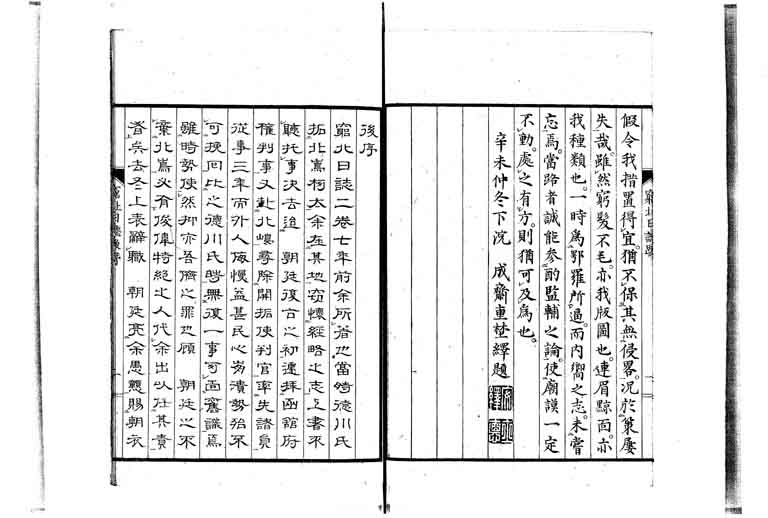 假令我措置得宜。猶不保其無侵畧。況於策屢
失哉。雖然窮髮不毛。亦我版圖也。連眉黥面。亦
我種類也。一時爲鄂羅所逼。而內嚮之志。未嘗
忘焉。當路者誠能參酌監輔之論。使廟謨一定
不動。處之有方。則猶可及爲也。
辛未仲冬下浣 成齋重埜繹題
窮北日誌跋
後序
窮北日誌二卷七年前余所著也當時德川氏
拓北嶌柯太余在其地窃懷經略之志上書不
聽托事決去迨 朝廷復古之初連拜函館府
權判事又赴北嶁尋除開拓使判官率先諸員
從事三年而外人侮慢益甚民心崩潰勢殆不
可挽回比之德川氏時無復一事可面舊識焉
雖時勢使然抑亦吾儕之罪也顧 朝廷之不
棄北嶌必有俊偉特絕之人代余出以任其責
者矣去冬上表辭職 朝廷亮余愚戇賜朝衣